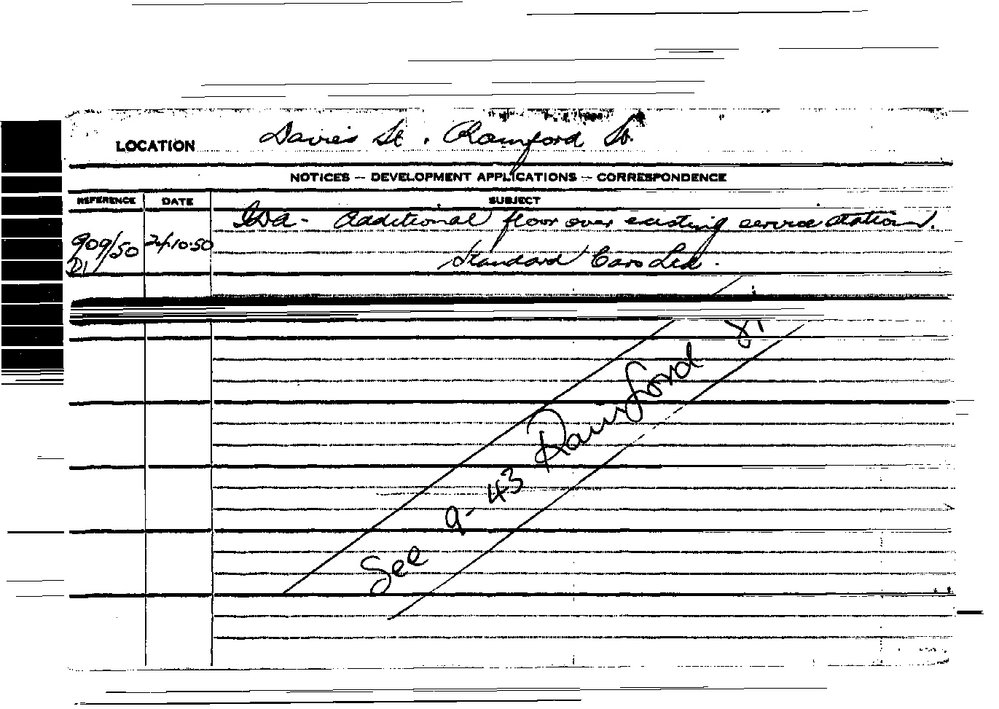 LOCATION Davies St. Rainford St.
NOTICES — DEVELOPMENT APPLICATIONS — CORRESPONDENCE
REFERENCE DATE SUBJECT
909/50 24.10.50 additional floor over existing service station.
D1 Standard Cars Ltd.
See 9-43 Rainford St